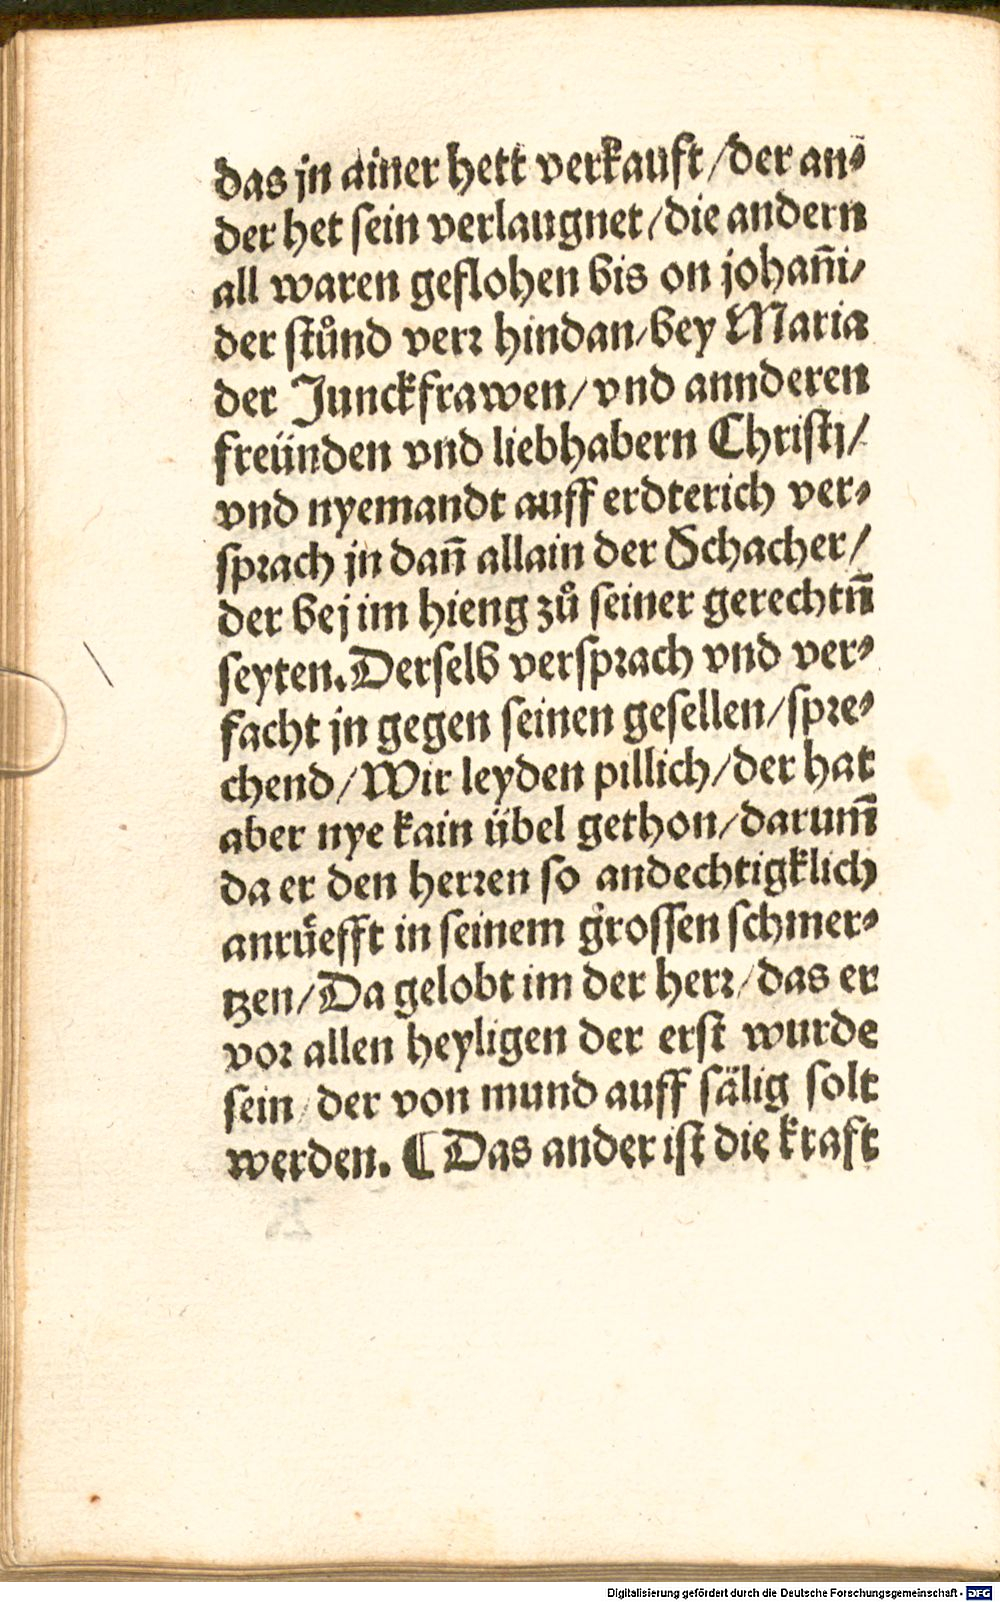 das jn ainer hett verkauft/der an⸗
der het sein verlaugnet/die andern
all waren geflohen bis on johan̄i/
der stůnd verr hindan/bey Maria
der Junckfrawen/vnd annderen
freünden vnd liebhabern Christj/
vnd nyemandt auff erdterich ver⸗
sprach jn dan̄ allain der Schacher/
der bej im hieng zů seiner gerechtn̄
seyten. Derselb versprach vnd ver⸗
facht jn gegen seinen gesellen/spre⸗
chend/Wir leyden pillich/der hat
aber nye kain übel gethon/darum̄
da er den herren so andechtigklich
anrüefft in seinem grossen schmer⸗
tzen/Da gelobt im der herr/das er
vor allen heyligen der erst wurde
sein/der von mund auff sälig solt
werden. ¶ Das ander ist die kraft
Digitalisierung gefördert durch die Deutsche Forschungsgemeinschaft - DFG